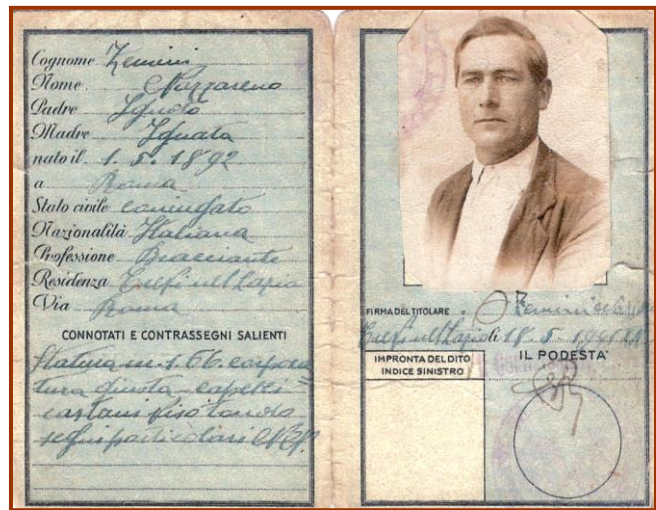 Cognome Zemini
Nome Nazzareno
Padre Ignoto
Madre Ignata
nato il 1.5.1892
a Roma
Stato civile coniugato
Nazionalità Italiana
Professione Bracciante
Residenza
Via Roma
CONNOTATI E CONTRASSEGNI SALIENTI
Statura m. 1.66. corpora
tura giusta - capelli
castani viso tondo
segni particolari
FIRMA DEL TITOLARE
li 18.5.1941
IMPRONTA DEL DITO
INDICE SINISTRO
IL PODESTA'